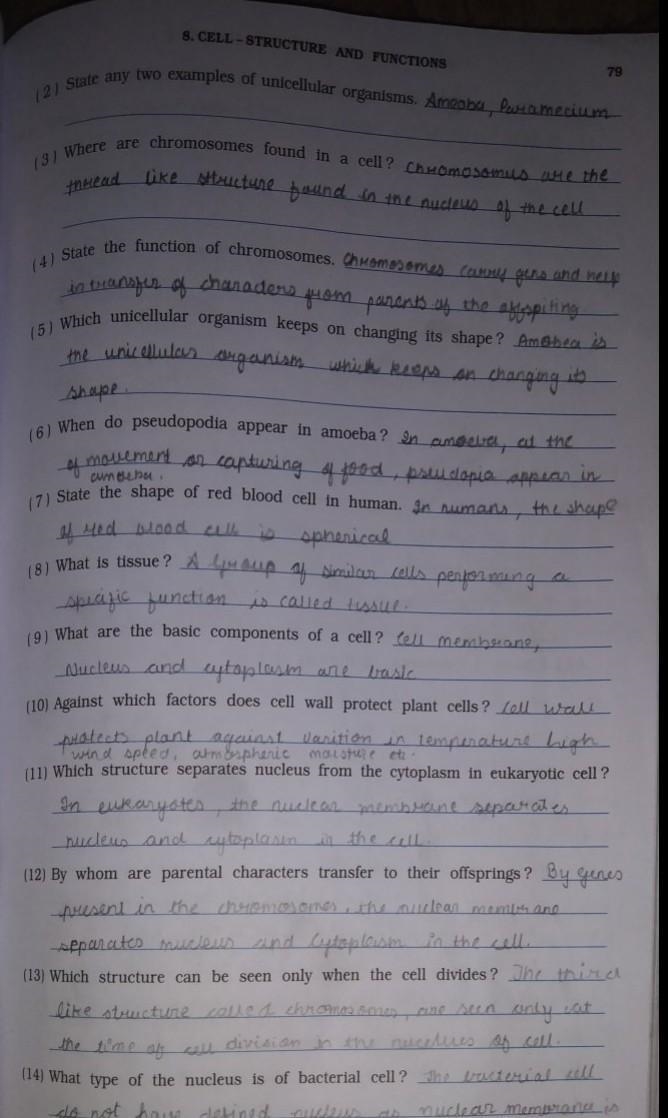 8. CELL – STRUCTURE AND FUNCTIONS
79
(2) State any two examples of unicellular organisms. Amoeba, Paramecium
(3) Where are chromosomes found in a cell? Chromosomus are the
thread like structure found in the nucleus of the cell
(4) State the function of chromosomes. Chromosomes carry gens and help
in transfer of characters from parents of the offspiting
(5) Which unicellular organism keeps on changing its shape? Amobea is
the unicellular organism which keeps on changing its
shape.
(6) When do pseudopodia appear in amoeba? In amoeba, at the
of movement or capturing of food, pseudopia appear in
amoeba.
(7) State the shape of red blood cell in human. In humans, the shape
of red blood cell is spherical
(8) What is tissue? A group of similar cells performing a
specific function is called tissue.
(9) What are the basic components of a cell? Cell membrane,
Nucleus and cytoplasm are basic
(10) Against which factors does cell wall protect plant cells? Cell wall
protects plant against varition in temperature high
wind speed, atmospheric moisture etc.
(11) Which structure separates nucleus from the cytoplasm in eukaryotic cell?
In eukaryotes, the nuclear membrane separates
nucleus and cytoplasm in the cell.
(12) By whom are parental characters transfer to their offsprings? By genes
present in the chromosomes, the nuclear membrane
separates nucleus and cytoplasm in the cell.
(13) Which structure can be seen only when the cell divides? The third
like structure called chromosomes, are seen only at
the time of cell division in the nucelues of cell.
(14) What type of the nucleus is of bacterial cell? The bacterial cell
do not have defined nucleus as nuclear membrane is